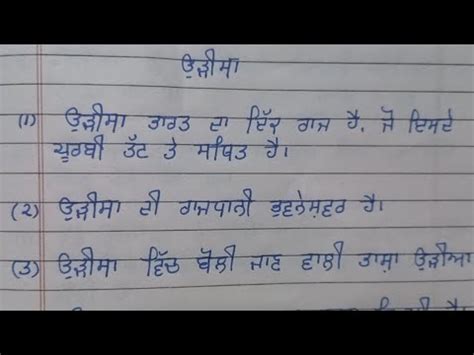 ਉੜੀਸਾ
(1) ਉੜੀਸਾ ਭਾਰਤ ਦਾ ਇੱਕ ਰਾਜ ਹੈ, ਜੋ ਇਸਦੇ
ਪੂਰਬੀ ਤੱਟ ਤੇ ਸਥਿਤ ਹੈ।
(੨) ਉੜੀਸਾ ਦੀ ਰਾਜਧਾਨੀ ਭੁਵਨੇਸ਼ਵਰ ਹੈ।
(੩) ਉੜੀਸਾ ਵਿੱਚ ਬੋਲੀ ਜਾਣ ਵਾਲੀ ਭਾਸ਼ਾ ਉੜੀਆ